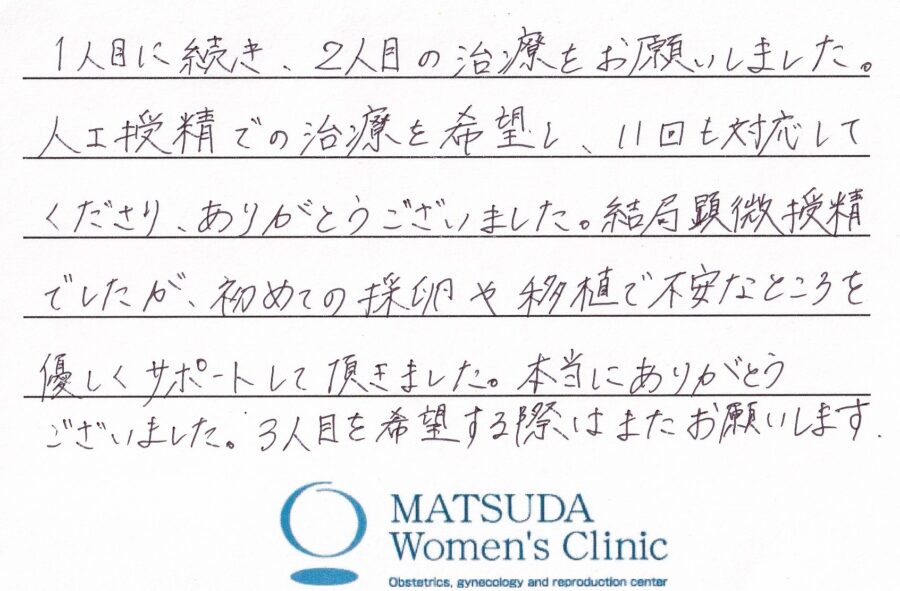 1人目に続き、2人目の治療をお願いしました。
人工授精での治療を希望し、11回も対応して
くださり、ありがとうございました。結局顕微授精
でしたが、初めての採卵や移植で不安なところを
優しくサポートして頂きました。本当にありがとう
ございました。3人目を希望する際はまたお願いします.
MATSUDA
Women's Clinic
Obstetrics, gynecology and reproduction center